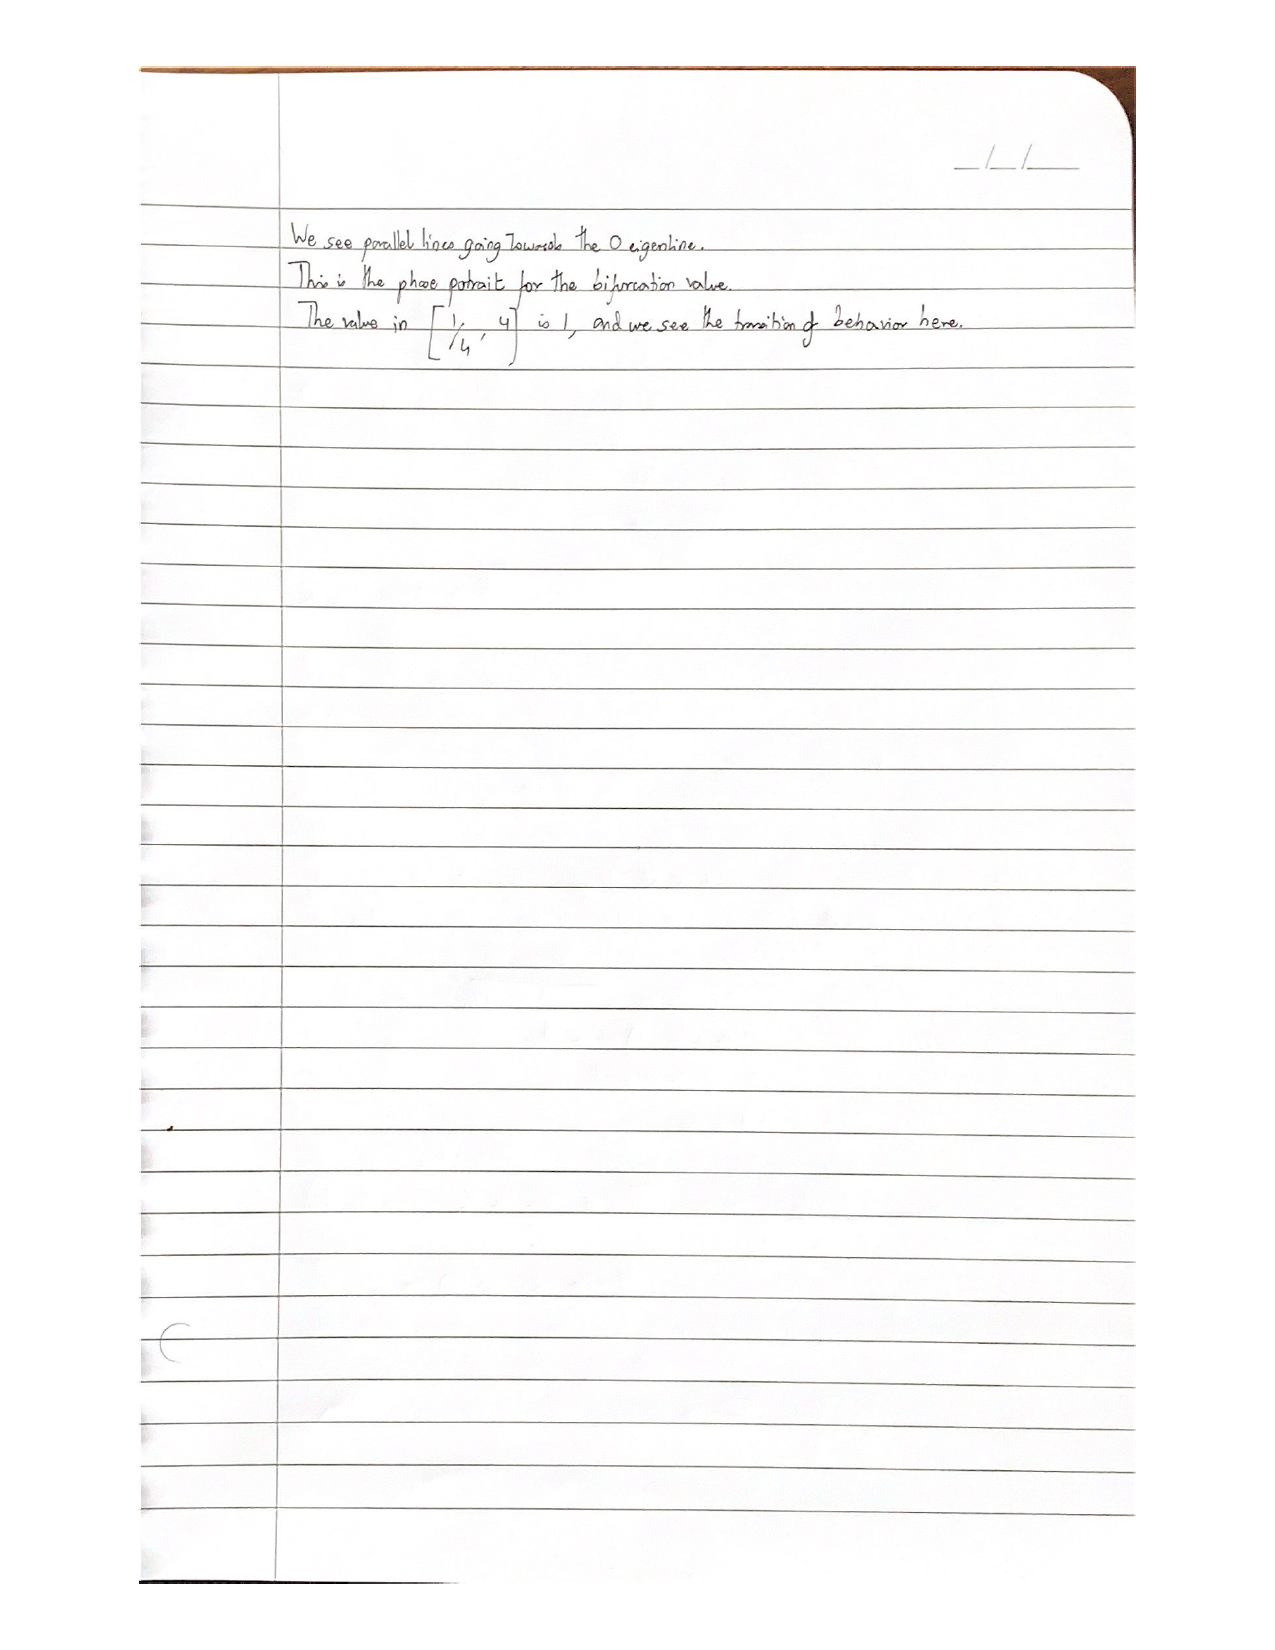 _/_/__
We see parallel lines going towards the 0 eigenline.
This is the phase potrait for the bifurcation value.
The value in [1/4, 4] is 1, and we see the transition of behavior here.